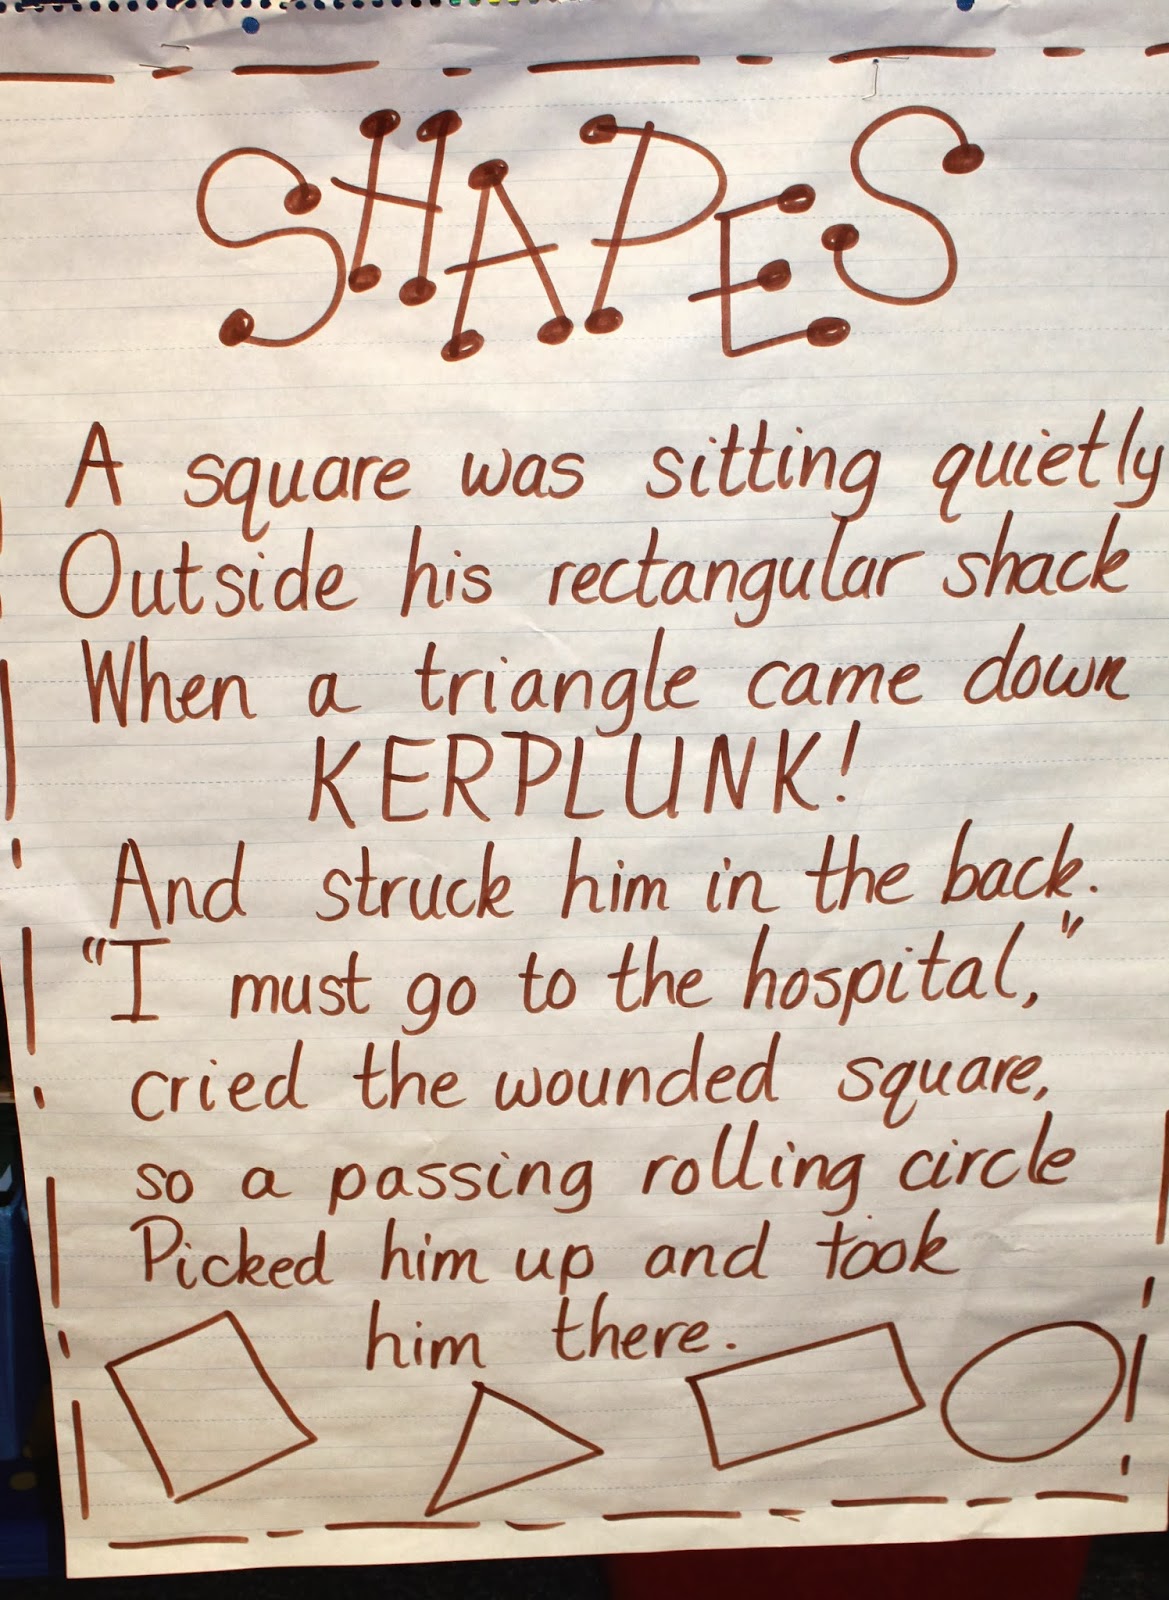 SHAPES
A square was sitting quietly
Outside his rectangular shack
When a triangle came down
KERPLUNK!
And struck him in the back.
"I must go to the hospital,"
cried the wounded square,
so a passing rolling circle
Picked him up and took
him there.